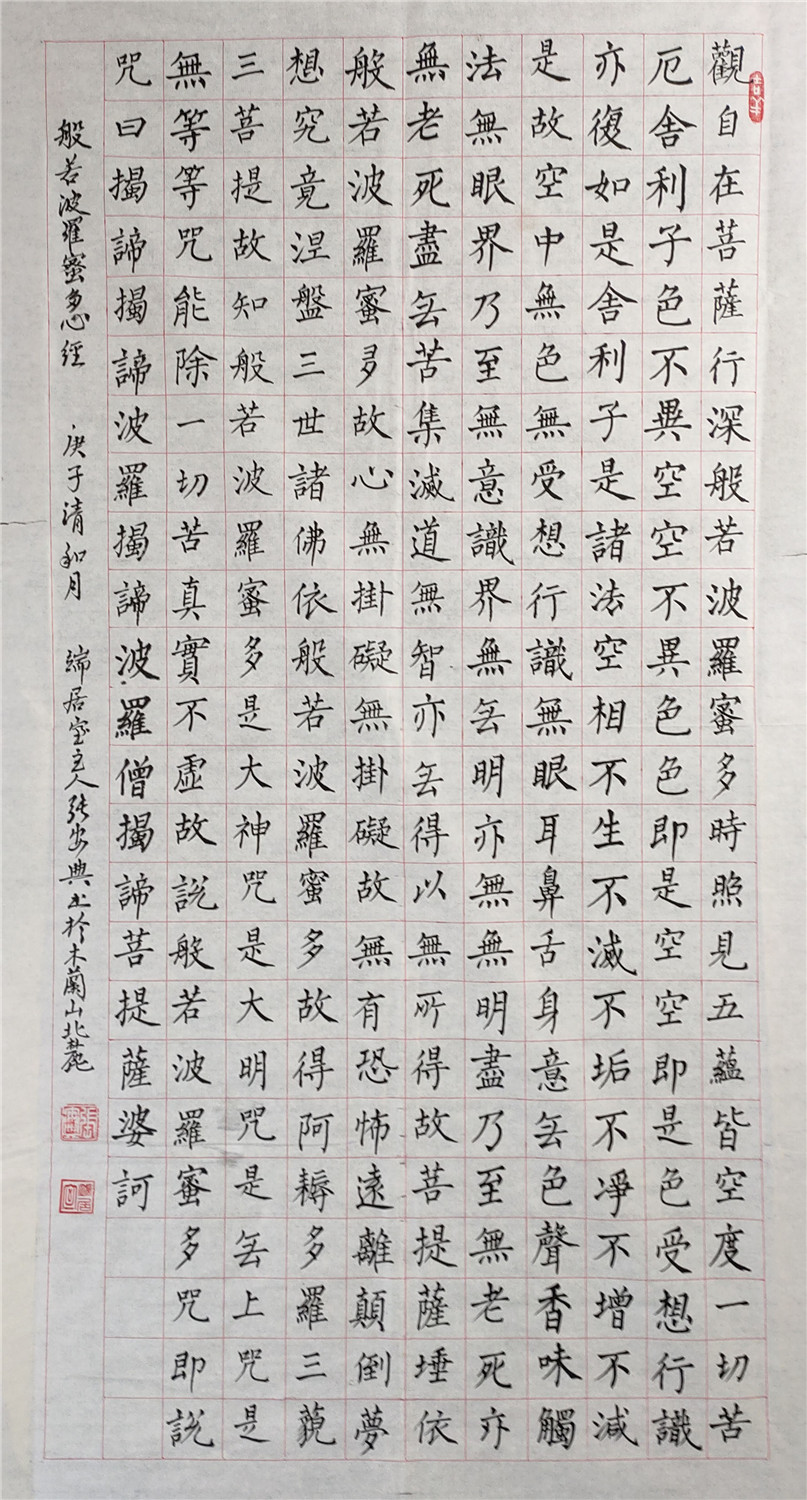 觀自在菩薩行深般若波羅蜜多時照見五蘊皆空度一切苦
厄舍利子色不異空空不異色色即是空空即是色受想行識
亦復如是舍利子是諸法空相不生不滅不垢不淨不增不減
是故空中無色無受想行識無眼耳鼻舌身意无色聲香味觸
法無眼界乃至無意識界無无明亦無無明盡乃至無老死亦
無老死盡无苦集滅道無智亦无得以無所得故菩提薩埵依
般若波羅蜜多故心無掛礙無掛礙故無有恐怖遠離顛倒夢
想究竟涅盤三世諸佛依般若波羅蜜多故得阿耨多羅三藐
三菩提故知般若波羅蜜多是大神咒是大明咒是无上咒是
無等等咒能除一切苦真實不虛故說般若波羅蜜多咒即說
咒曰揭諦揭諦波羅揭諦波羅僧揭諦菩提薩婆訶
般若波羅蜜多心經 庚子清和月 端居室主人張安典書於木蘭山北麓